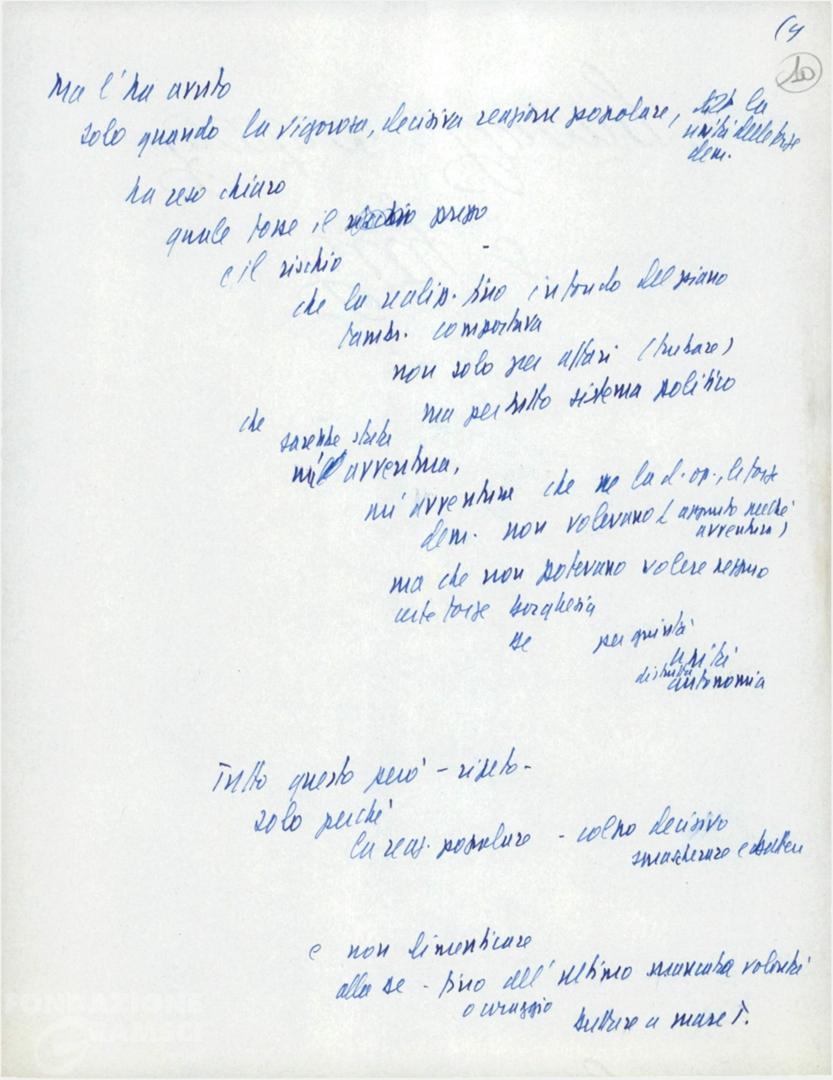 (4
10
Ma l'ha avuto
solo quando la vigorosa, decisiva reazione popolare, la
unità delle forze
dem.
ha reso chiaro
quale fosse il prezzo
e il rischio
che la realizz. fino in fondo del piano
Tambr. comportava
non solo per affari (turbare)
ma per tutto sistema politico
che
sarebbe stata
un' avventura,
un' avventura che ne la d. op., le forze
dem. non volevano (appunto perché
avventura)
ma che non potevano volere nessuno
certe forze borghesia
DC per quanto
unità
distrutta
autonomia
Tutto questo però - ripeto -
solo perché
la reaz. popolare - colpo decisivo
smascherare e battere
e non dimenticare
alla DC - fino all'ultimo mancata volontà
o coraggio
buttare a mare T.